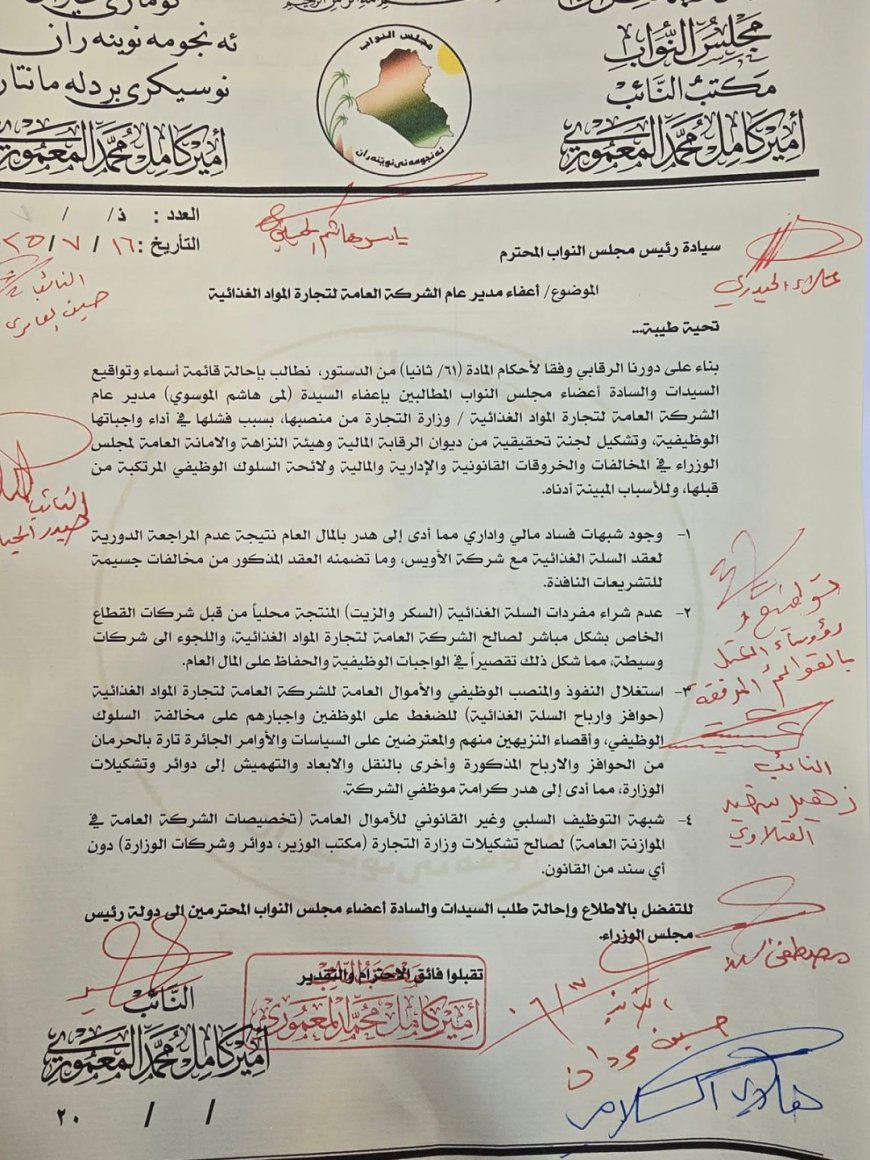 مجلس النواب
مكتب النائب
أمير كامل محمد المعموري
ئه نجومه نوينه ران
نوسيكرى بردله مانتار
أمير كامل محمد المعموري
مجلس النواب
ئه نجومه نى نوێنه ران
العدد : ذ/ /
التأريخ : ١٦ / ٧ / ٢٥
سيادة رئيس مجلس النواب المحترم
الموضوع/ أعفاء مدير عام الشركة العامة لتجارة المواد الغذائية
تحية طيبة...
بناء على دورنا الرقابي وفقا لأحكام المادة (٦١/ ثانيا) من الدستور، نطالب بإحالة قائمة أسماء وتواقيع
السيدات والسادة أعضاء مجلس النواب المطالبين بإعفاء السيدة (لمى هاشم الموسوي) مدير عام
الشركة العامة لتجارة المواد الغذائية / وزارة التجارة من منصبها، بسبب فشلها في أداء واجباتها
الوظيفية، وتشكيل لجنة تحقيقية من ديوان الرقابة المالية وهيئة النزاهة والامانة العامة لمجلس
الوزراء في المخالفات والخروقات القانونية والإدارية والمالية ولائحة السلوك الوظيفي المرتكبة من
قبلها، وللأسباب المبينة أدناه.
١- وجود شبهات فساد مالي واداري مما أدى إلى هدر بالمال العام نتيجة عدم المراجعة الدورية
لعقد السلة الغذائية مع شركة الأويس، وما تضمنه العقد المذكور من مخالفات جسيمة
للتشريعات النافذة.
٢- عدم شراء مفردات السلة الغذائية (السكر والزيت) المنتجة محلياً من قبل شركات القطاع
الخاص بشكل مباشر لصالح الشركة العامة لتجارة المواد الغذائية، واللجوء الى شركات
وسيطة، مما شكل ذلك تقصيراً في الواجبات الوظيفية والحفاظ على المال العام.
٣- استغلال النفوذ والمنصب الوظيفي والأموال العامة للشركة العامة لتجارة المواد الغذائية
(حوافز وارباح السلة الغذائية) للضغط على الموظفين واجبارهم على مخالفة السلوك
الوظيفي، وأقصاء النزيهين منهم والمعترضين على السياسات والأوامر الجائرة تارة بالحرمان
من الحوافز والارباح المذكورة وأخرى بالنقل والابعاد والتهميش إلى دوائر وتشكيلات
الوزارة، مما أدى إلى هدر كرامة موظفي الشركة.
٤- شبهة التوظيف السلبي وغير القانوني للأموال العامة (تخصيصات الشركة العامة في
الموازنة العامة) لصالح تشكيلات وزارة التجارة (مكتب الوزير، دوائر وشركات الوزارة) دون
أي سند من القانون.
للتفضل بالاطلاع وإحالة طلب السيدات والسادة أعضاء مجلس النواب المحترمين إلى دولة رئيس
مجلس الوزراء.
تقبلوا فائق الاحترام والتقدير
النائب
أمير كامل محمد المعموري
النائب
أمير كامل محمد المعموري
٢٠ / /
ياسر هاشم
علاء الحيدري
النائب
حسين العامري
النائب
حيدر
تواقيع
رؤوساء الكتل
بالقوائم المرفقة
النائب
زهير شهيد
الفتلاوي
مصطفى سند
النائب
حسين مردان
هادي السلامي